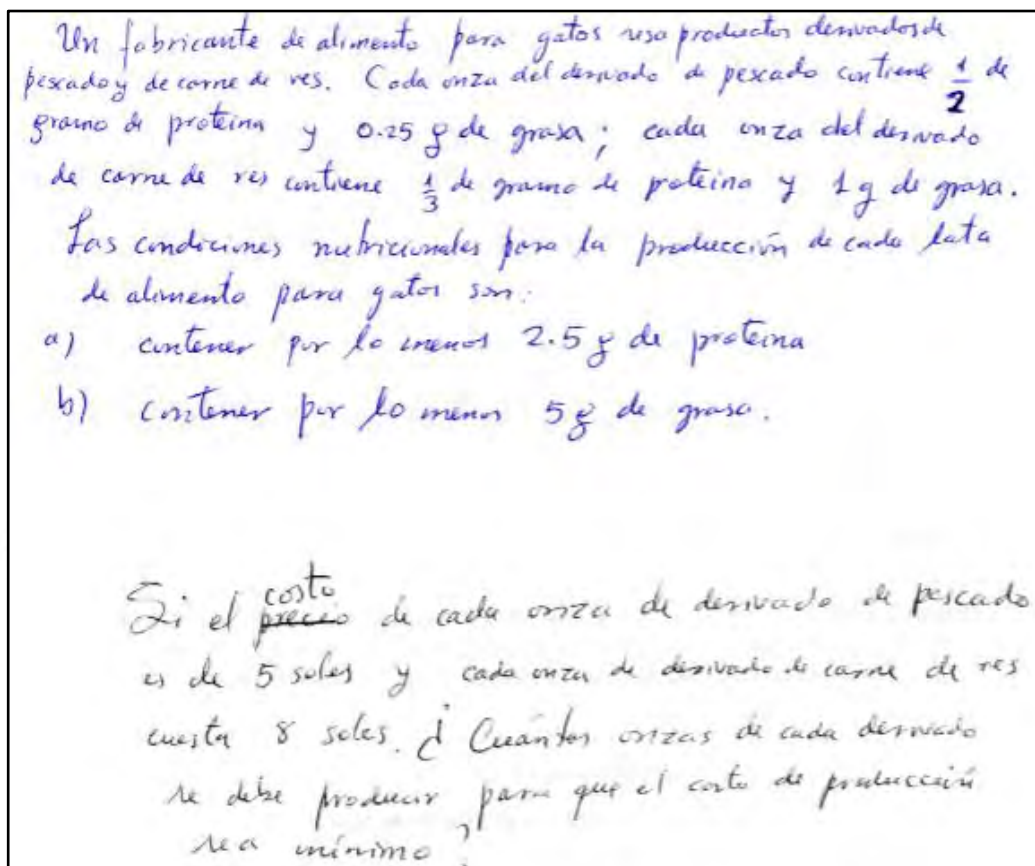 Un fabricante de alimento para gatos usa productos derivados de
pescado y de carne de res. Cada onza del derivado de pescado contiene 1/2 de
gramo de proteina y 0.25 g de grasa; cada onza del derivado
de carne de res contiene 1/3 de gramo de proteina y 1 g de grasa.
Las condiciones nutricionales para la producción de cada lata
de alimento para gatos son:
a) contener por lo menos 2.5 g de proteina
b) contener por lo menos 5 g de grasa.
Si el precio costo de cada onza de derivado de pescado
es de 5 soles y cada onza de derivado de carne de res
cuesta 8 soles. ¿Cuántos onzas de cada derivado
se debe producir para que el costo de producción
sea mínimo?